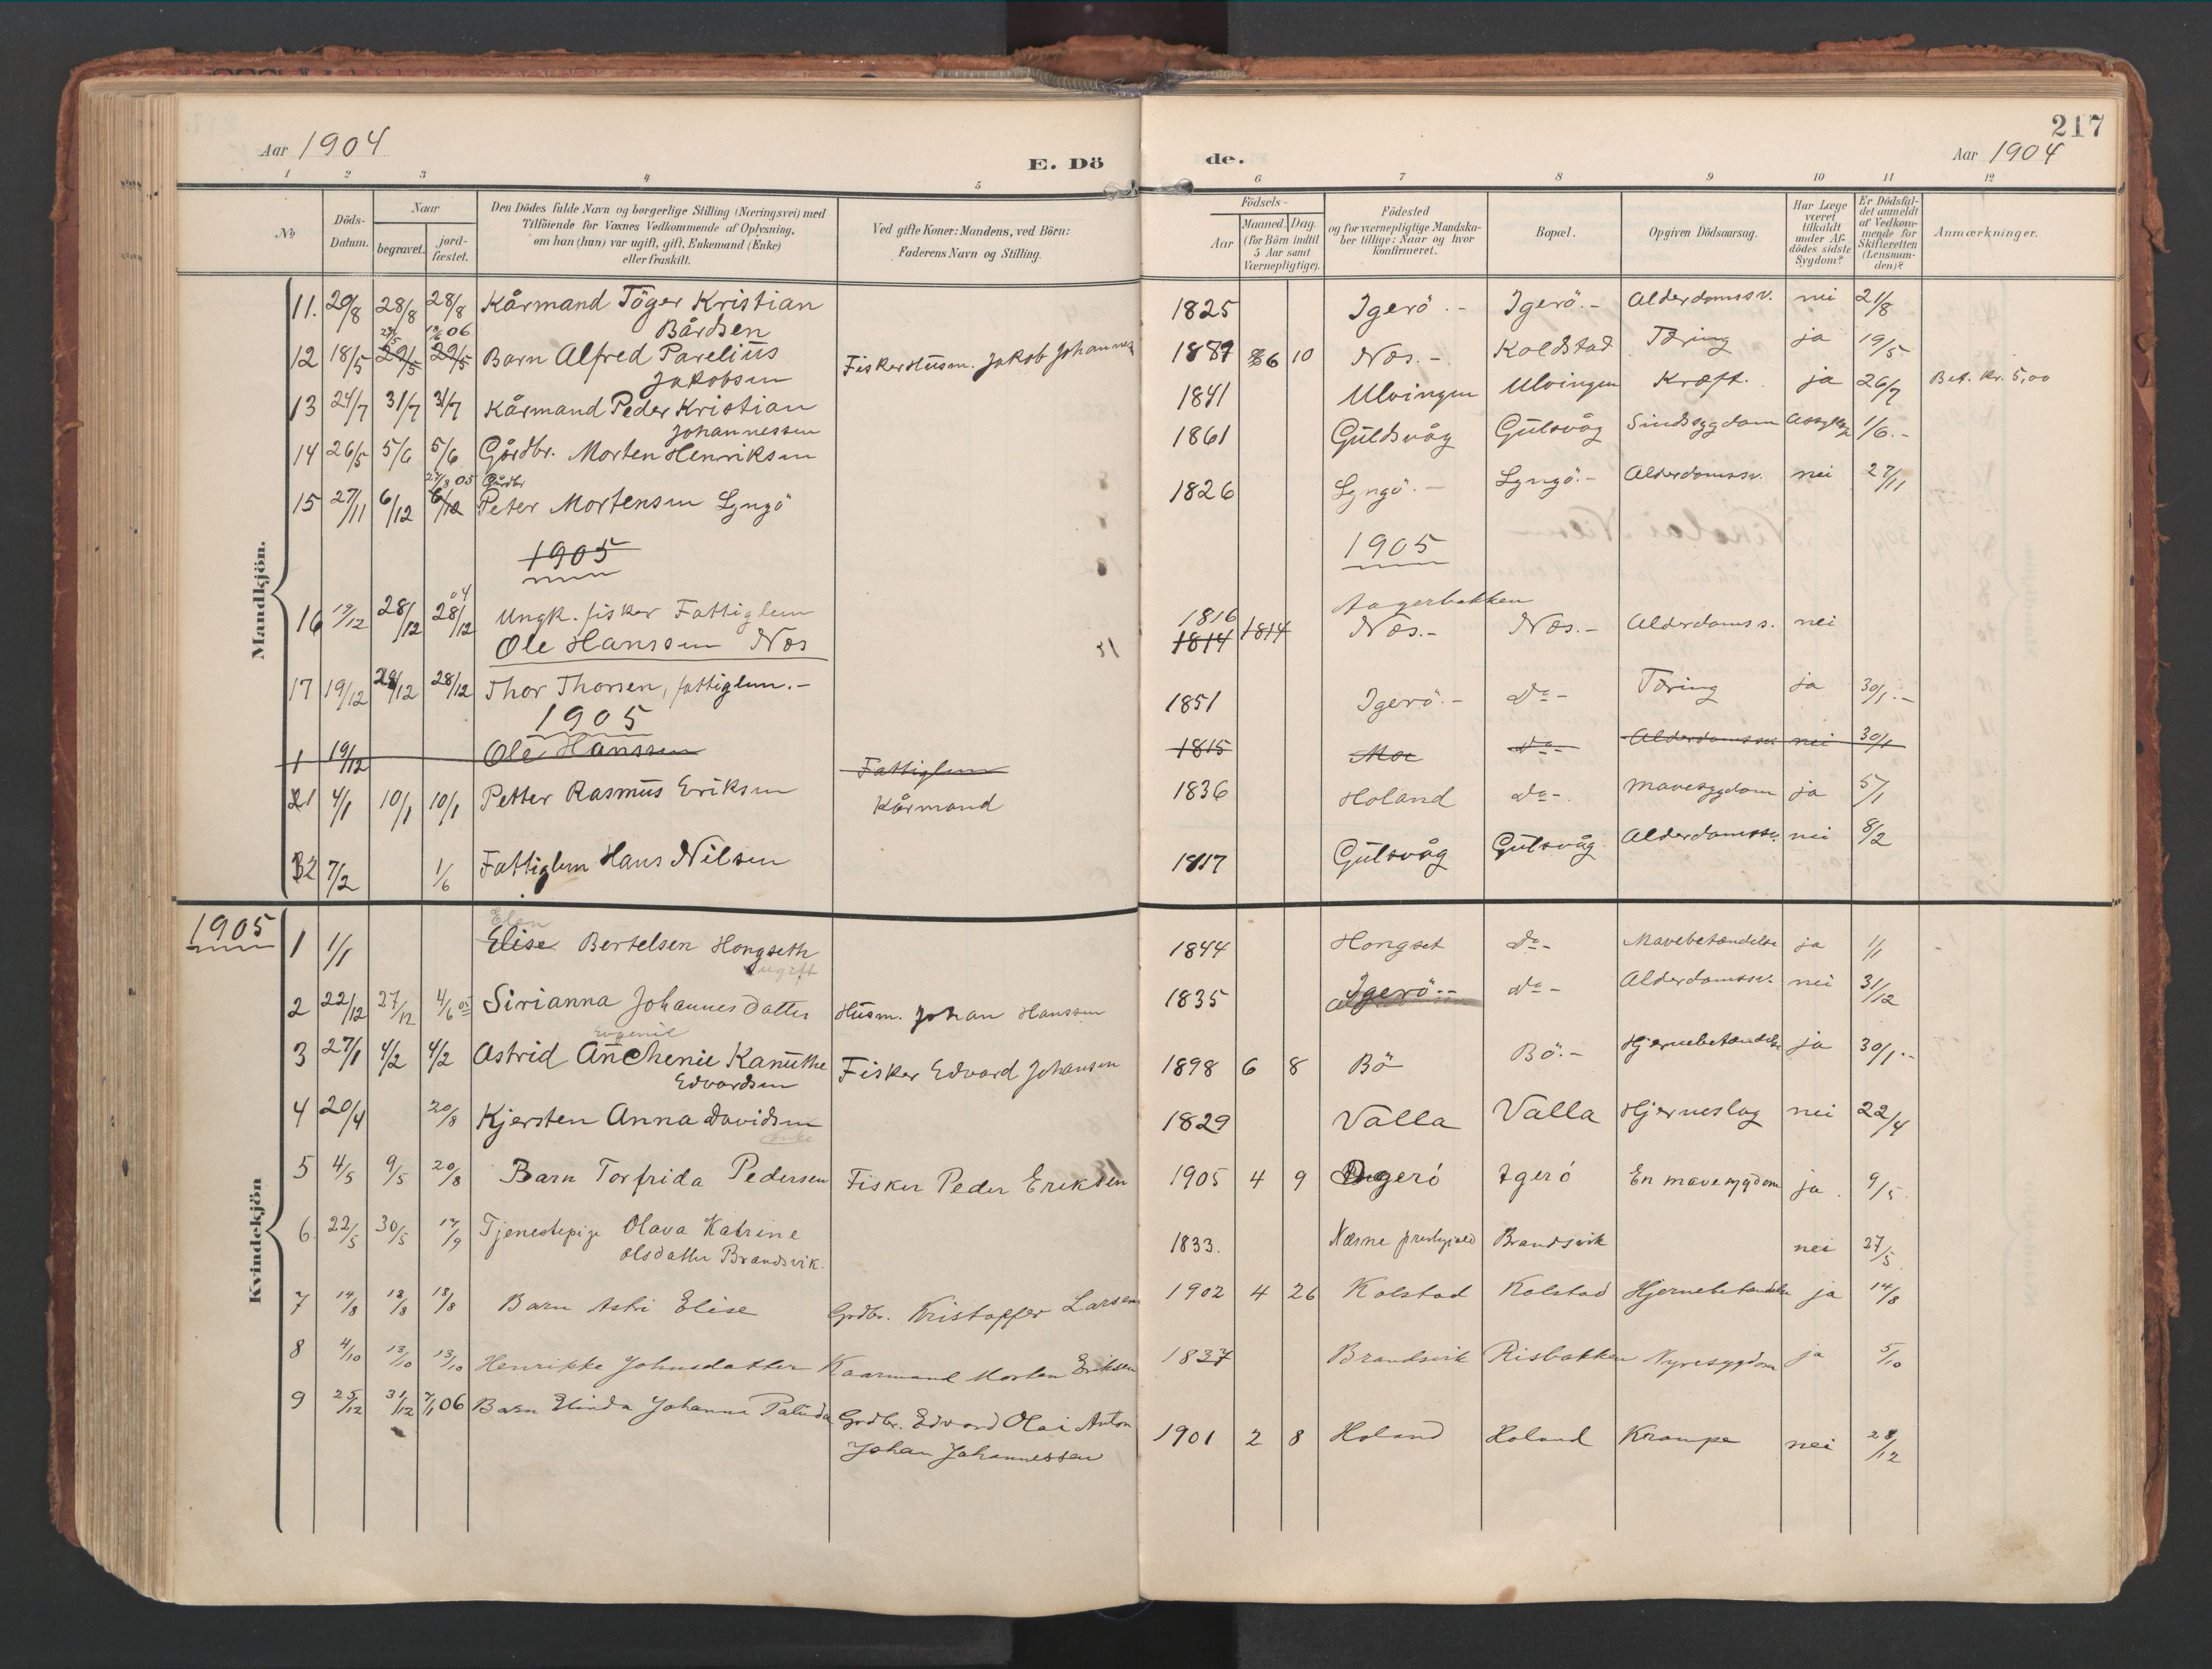 217
Aar 1904
E. Dö de.
Aar 1904
1 2 3 4 5 6 7 8 9 10 11 12
№
Döds-Datum.
Naar
begravet.
jord-fæstet.
Den Dödes fulde Navn og borgerlige Stilling (Næringsvei) med
Tilföiende for Voxnes Vedkommende af Oplysning,
om han (hun) var ugift, gift, Enkemand (Enke)
eller fraskilt.
Ved gifte Koner: Mandens, ved Börn:
Faderens Navn og Stilling.
Födsels-
Aar
Maaned. Dag.
(for Börn indtil
5 Aar samt
Værnepligtige).
Födested
og for værnepligtige Mandska-
ber tillige: Naar og hvor
konfirmeret.
Bopæl.
Opgiven Dödsaarsag.
Har Læge
været
tilkaldt
under Af-
dödes sidste
Sygdom?
Er Dödsfal-
det anmeldt
af Vedkom-
mende for
Skifteretten
(Lensman-
den)?
Anmærkninger.
Mandkjön.
11. 20/8 28/8 28/8 Kårmand Töger Kristian Bårdsen 1825 Igerö.- Igerö.- Alderdomssv. nei 21/8
12 18/5 29/5 29/5 Barn Alfred Parelius Jakobsen Fisker Husm. Jakob Johannes 6 10 Næs.- Koldstad Tæring ja 19/5
13 24/7 31/7 31/7 Kårmand Peder Kristian Johannessen 1841 Ulvingen Ulvingen Kræft. ja 26/7 Bet. Kr. 5,00
14 26/5 5/6 5/6 Gårdbr. Morten Henriksen 1861 Guldsvåg Gulsvåg Sindssygdom 1/6.-
15 27/11 6/12 6/12 Gårdbr Peter Mortensen Lyngö 1826 Lyngö.- Lyngö.- Alderdomssv. nei 27/11
1905
1905
16 19/12 28/12 28/12 04 Ungk. fisker Fattiglem
Ole Hanssen Næs 1816 1814 1814 Næs.- Næs.- Alderdomss. nei
17 19/12 28/12 28/12 Thor Thorsen, fattiglem.- 1851 Igerö.- Do- Tæring ja 30/1.-
1905
1 19/12 Ole Hanssen Fattiglem 1815 Moe Do- Alderdomssv. nei 30/1
1 4/1 10/1 10/1 Petter Rasmus Eriksen Kårmand 1836 Holand Do- Mavesygdom ja 5/1
2 7/2 1/6 Fattiglem Hans Nilsen 1817 Gulsvåg Gulsvåg Alderdomssv. nei 8/2
1905
Kvindekjön
1 1/1 Elen Elise Bertelsen Hongseth ugift 1844 Hongset Do- Mavebetændelse ja 1/1
2 22/12 27/12 4/6 05 Sirianna Johannesdatter Husm. Johan Hanssen 1835 Igerö.- Do- Alderdomssv. nei 31/12
3 27/1 4/2 4/2 Astrid Anchenie Kanuthe Edvardsen Fisker Edvard Johansen 1898 6 8 Bö Bö.- Hjernebetændelse ja 30/1.-
4 20/4 20/8 Kjersten Anna Davidsen Enke 1829 Valla Valla Hjerneslag nei 22/4
5 4/5 9/5 20/8 Barn Torfrida Pedersen Fisker Peder Eriksen 1905 4 9 Igerö En mavesygdom ja. 9/5.
6. 22/5 30/5 17/9 Tjenestepige Olava Katrine
Olsdatter Brandsvik. 1833. Næsne prestegjeld Brandsvik nei 27/5
7 14/8 18/8 18/8 Barn Astri Elise Grdbr. Kristoffer Larsen 1902 4 26 Kolstad Kolstad Hjernebetændelse ja 14/8
8 4/10 13/10 13/10 Henrikke Johnsdatter Kaarmand Morten Eriksen 1837 Brandsvik Risbakken Nyresygdom ja 5/10
9 25/12 31/12 7/1 06 Barn Johanna Paluda Grdbr. Edvard Olai Anton
Johan Johannessen 1901 2 8 Holand Holand Krampe nei 28/12